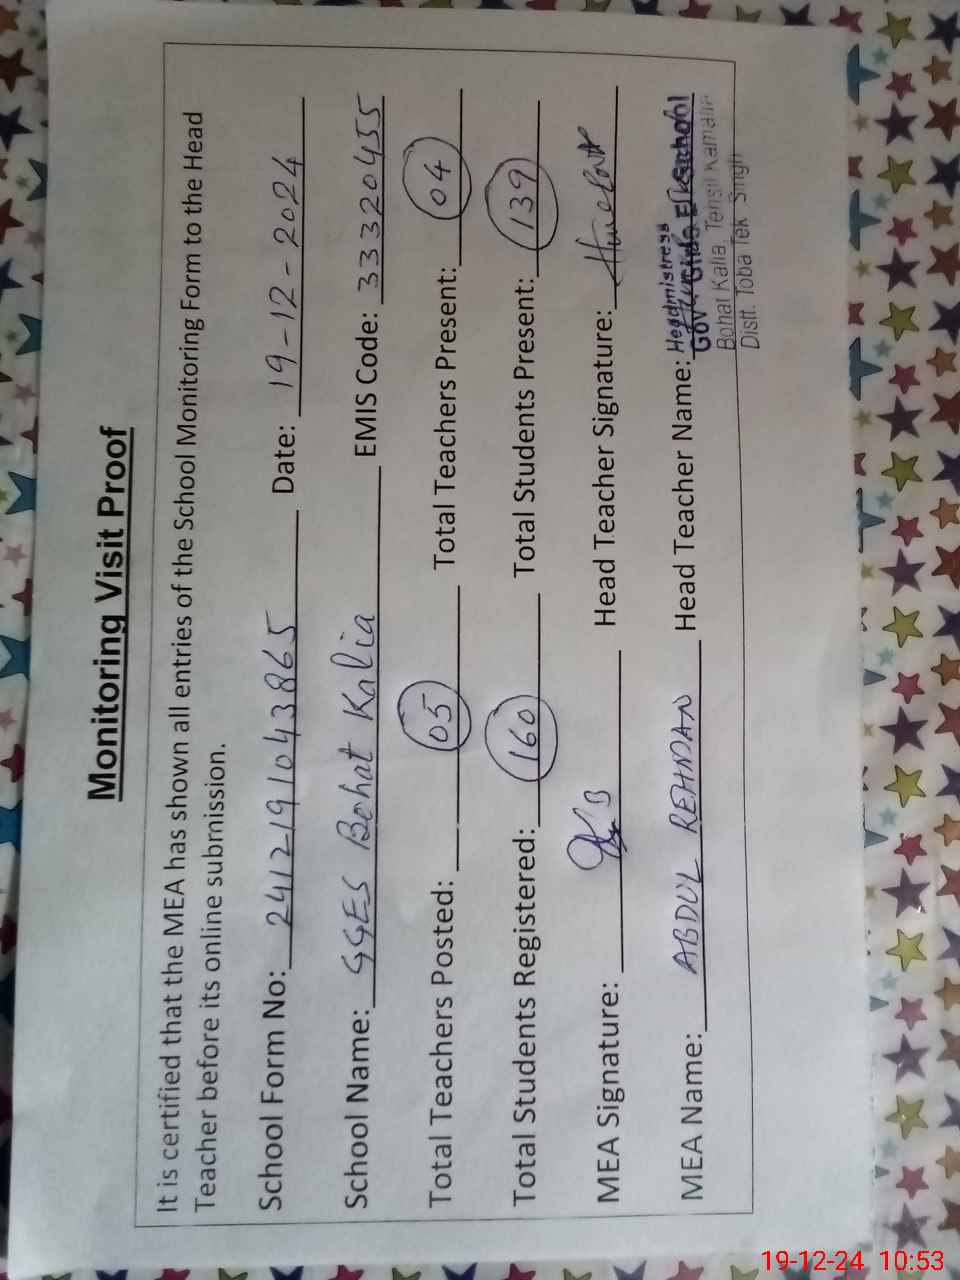 Monitoring Visit Proof
It is certified that the MEA has shown all entries of the School Monitoring Form to the Head
Teacher before its online submission.
School Form No: 2412191043865 Date: 19-12-2024
School Name: GGES Bohat Kalia EMIS Code: 33320455
Total Teachers Posted: 05 Total Teachers Present: 04
Total Students Registered: 160 Total Students Present: 139
MEA Signature: Head Teacher Signature:
MEA Name: ABDUL REHMAN Head Teacher Name: Headmistress
Gov Girls School
Bohat Kalia, Tehsil Kamalia
Distt. Toba Tek Singh
19-12-24 10:53